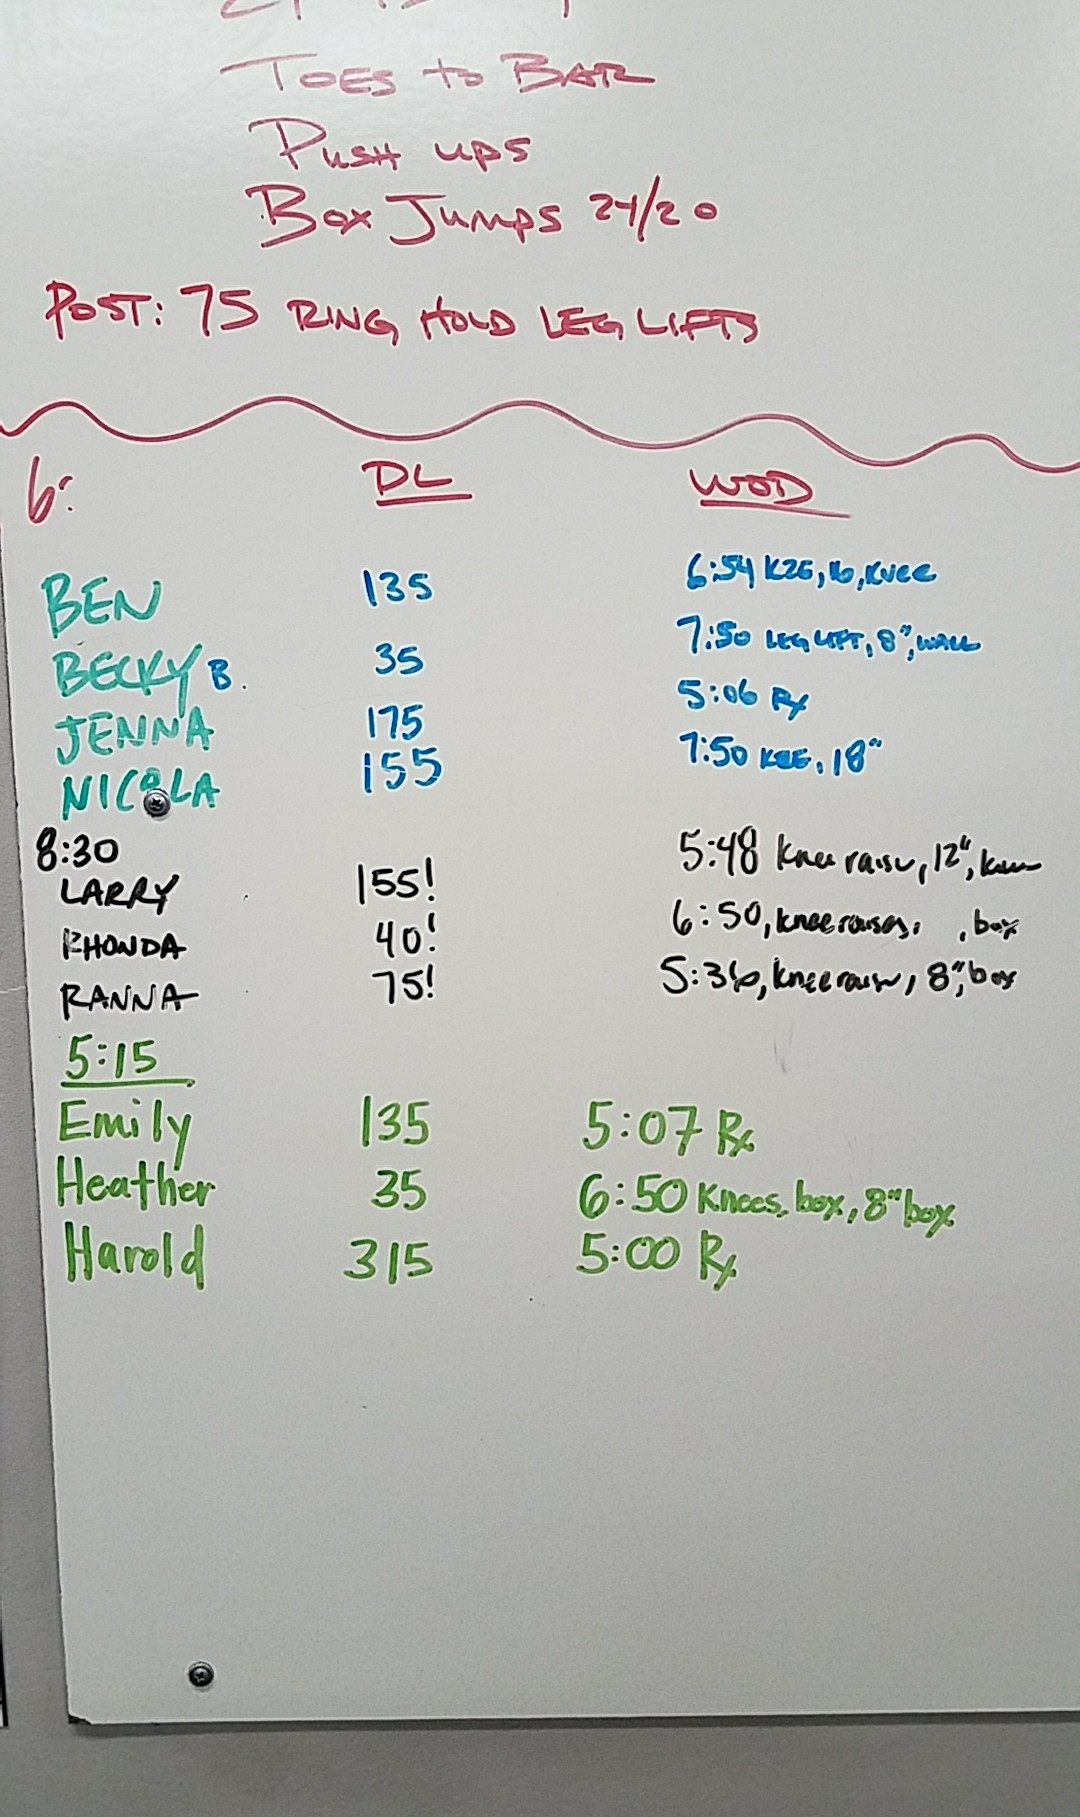 TOES to BAR
PUSH UPS
BOX JUMPS 24/20
POST: 75 RING HOLD LEG LIFTS
6: DL WOD
BEN 135 6:54 K2E, 16, KNEE
BECKY B. 35 7:50 LEG LIFT, 8", WALL
JENNA 175 5:06 Rx
NICOLA 155 7:50 K2E, 18"
8:30
LARRY 155! 5:48 Knee raise, 12",
RHONDA 40! 6:50, knee raises, , box
RANNA 75! 5:36, knee raise, 8", box
5:15
Emily 135 5:07 Rx
Heather 35 6:50 Knees, box, 8" box
Harold 315 5:00 Rx